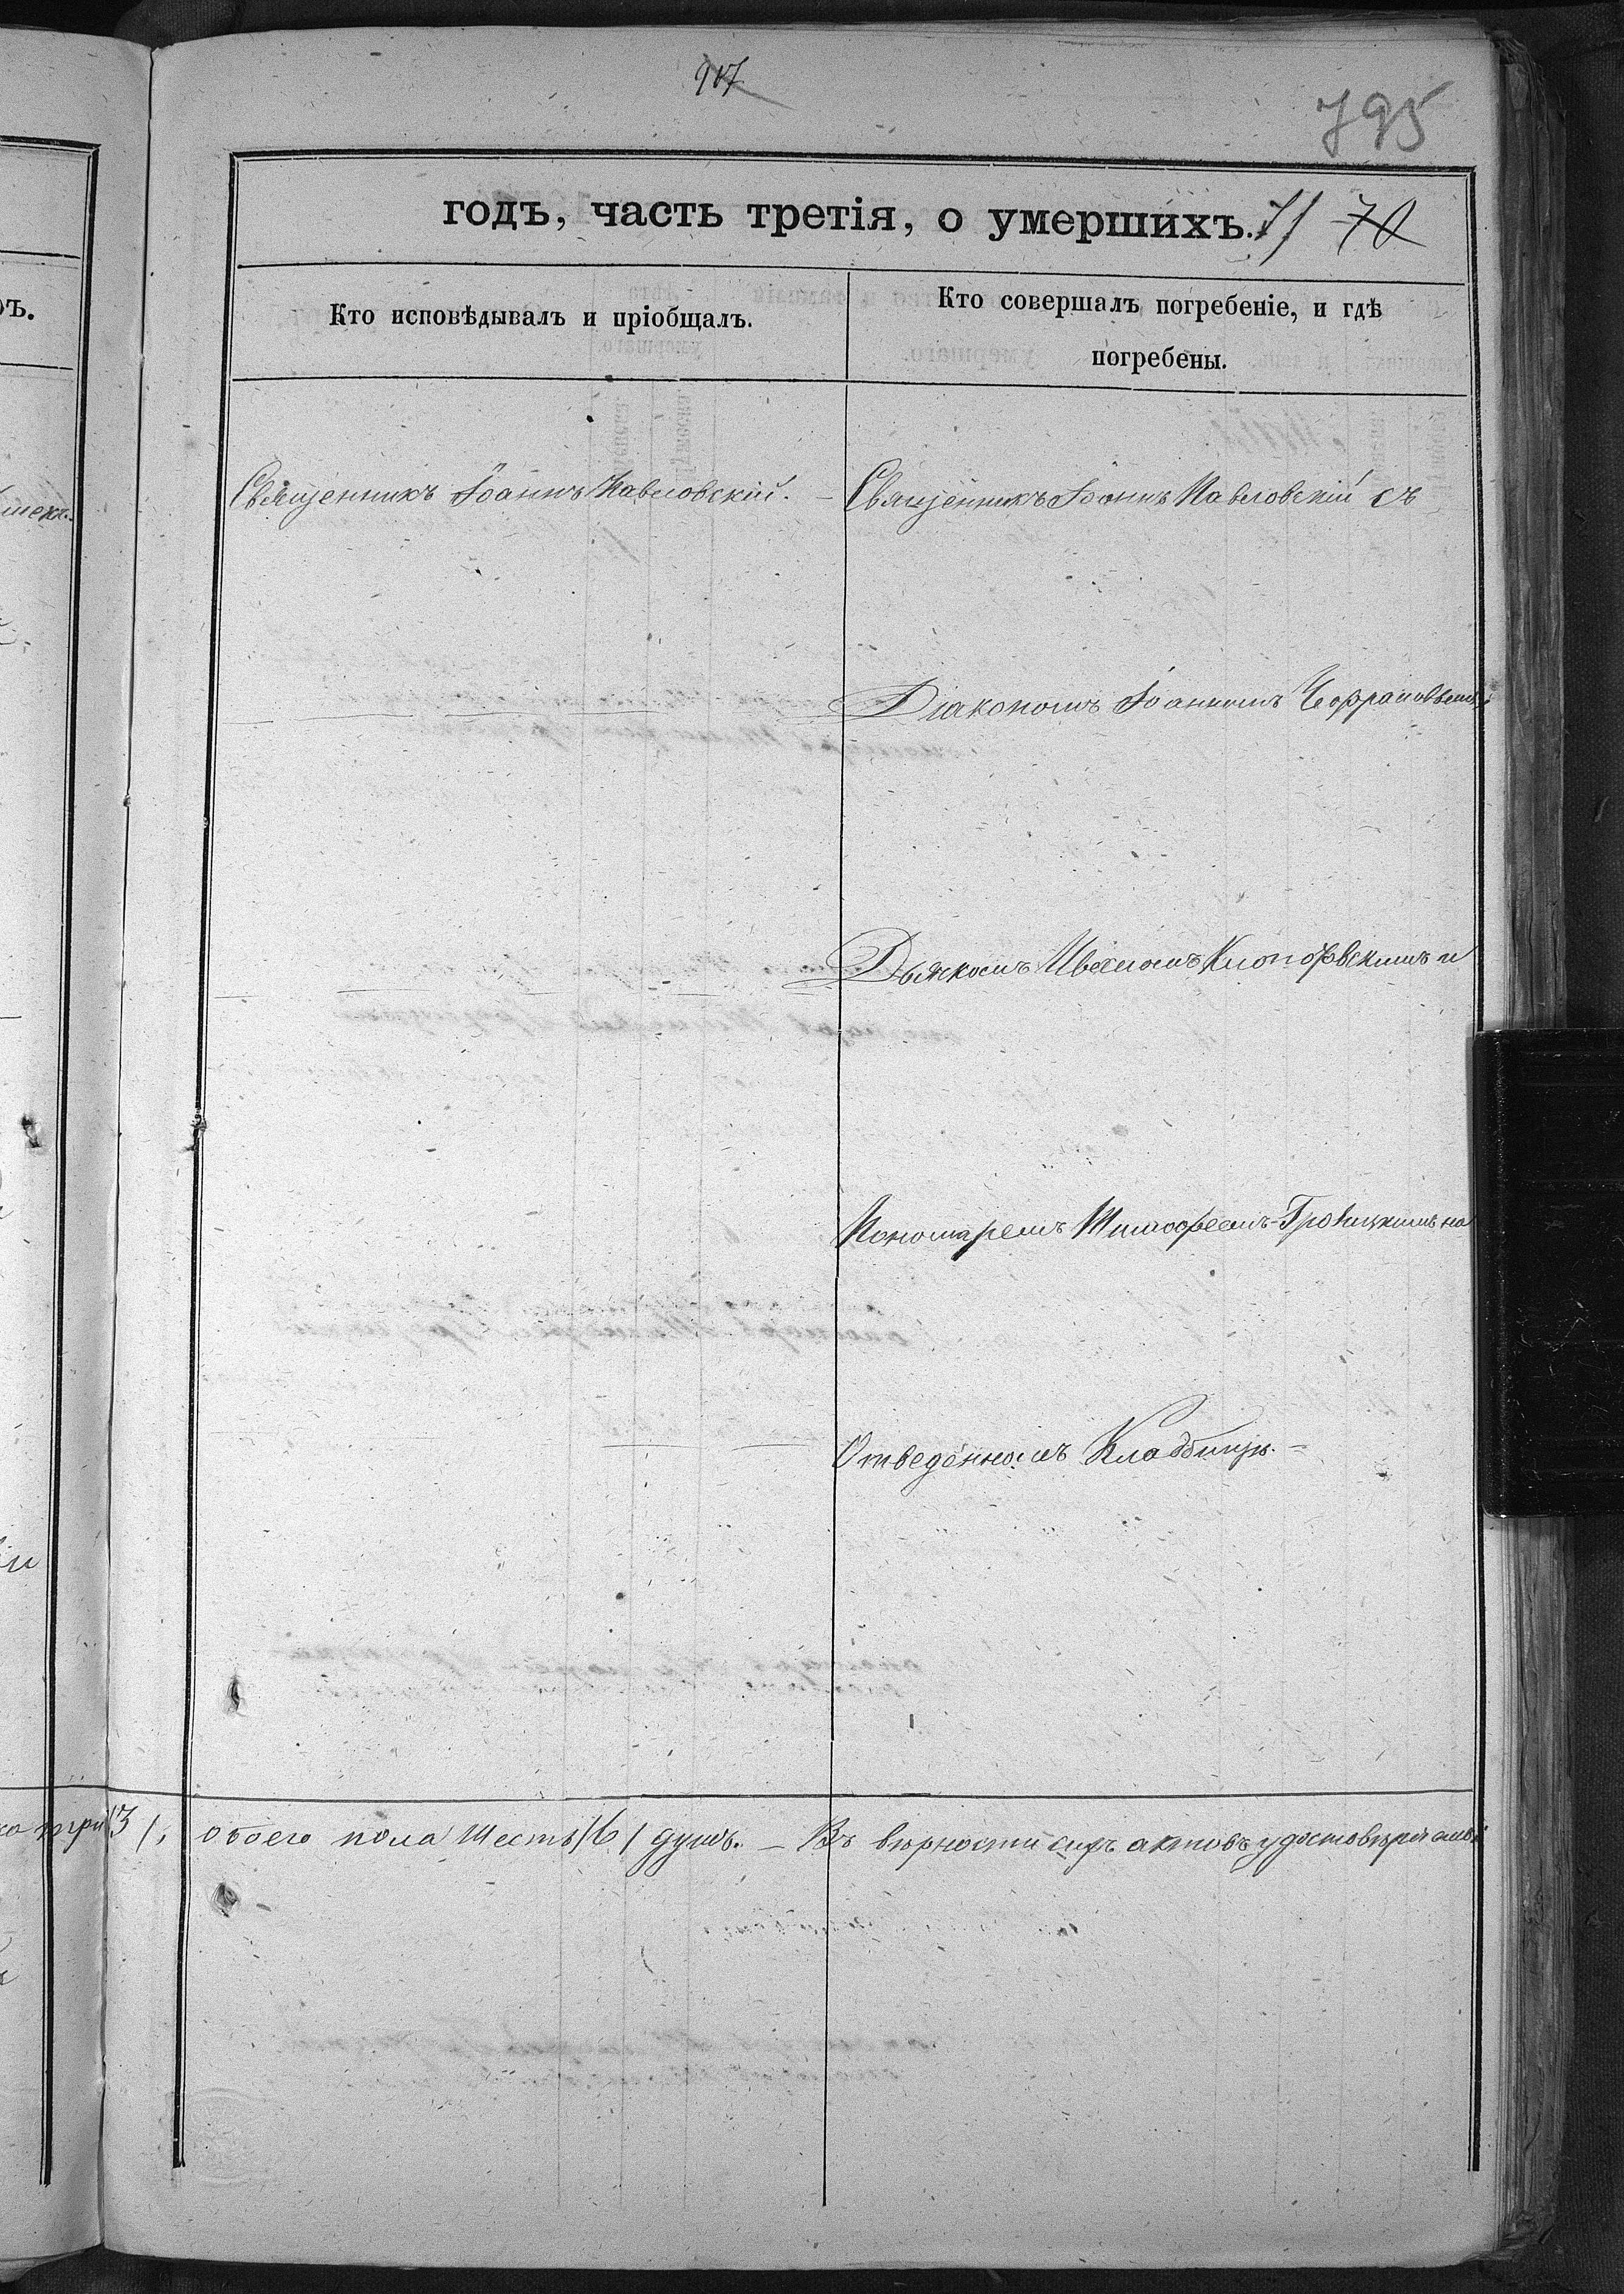 907
795
годъ, часть третія, о умершихъ. 71 70
Кто исповѣдывалъ и пріобщалъ.
Кто совершалъ погребеніе, и гдѣ
погребены.
Священникъ Іоаннъ Павловскій. –
Священникъ Іоаннъ Павловскій съ
Діакономъ Іоанномъ
Дьячкомъ и
Пономаремъ Тимофеемъ на
Отведенномъ Кладбищѣ. –
три /3/, обоего пола Шесть /6/ душъ. – Въ вѣрности сихъ актовъ